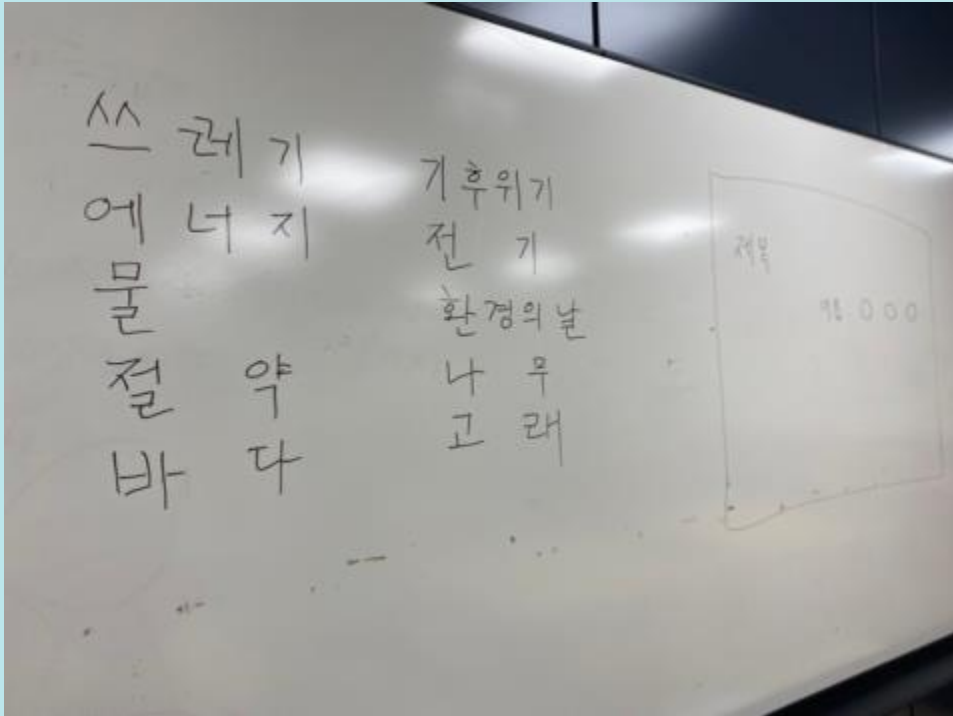 쓰레기
에너지
물
절약
바다
기후위기
전기
환경의날
나무
고래
제목